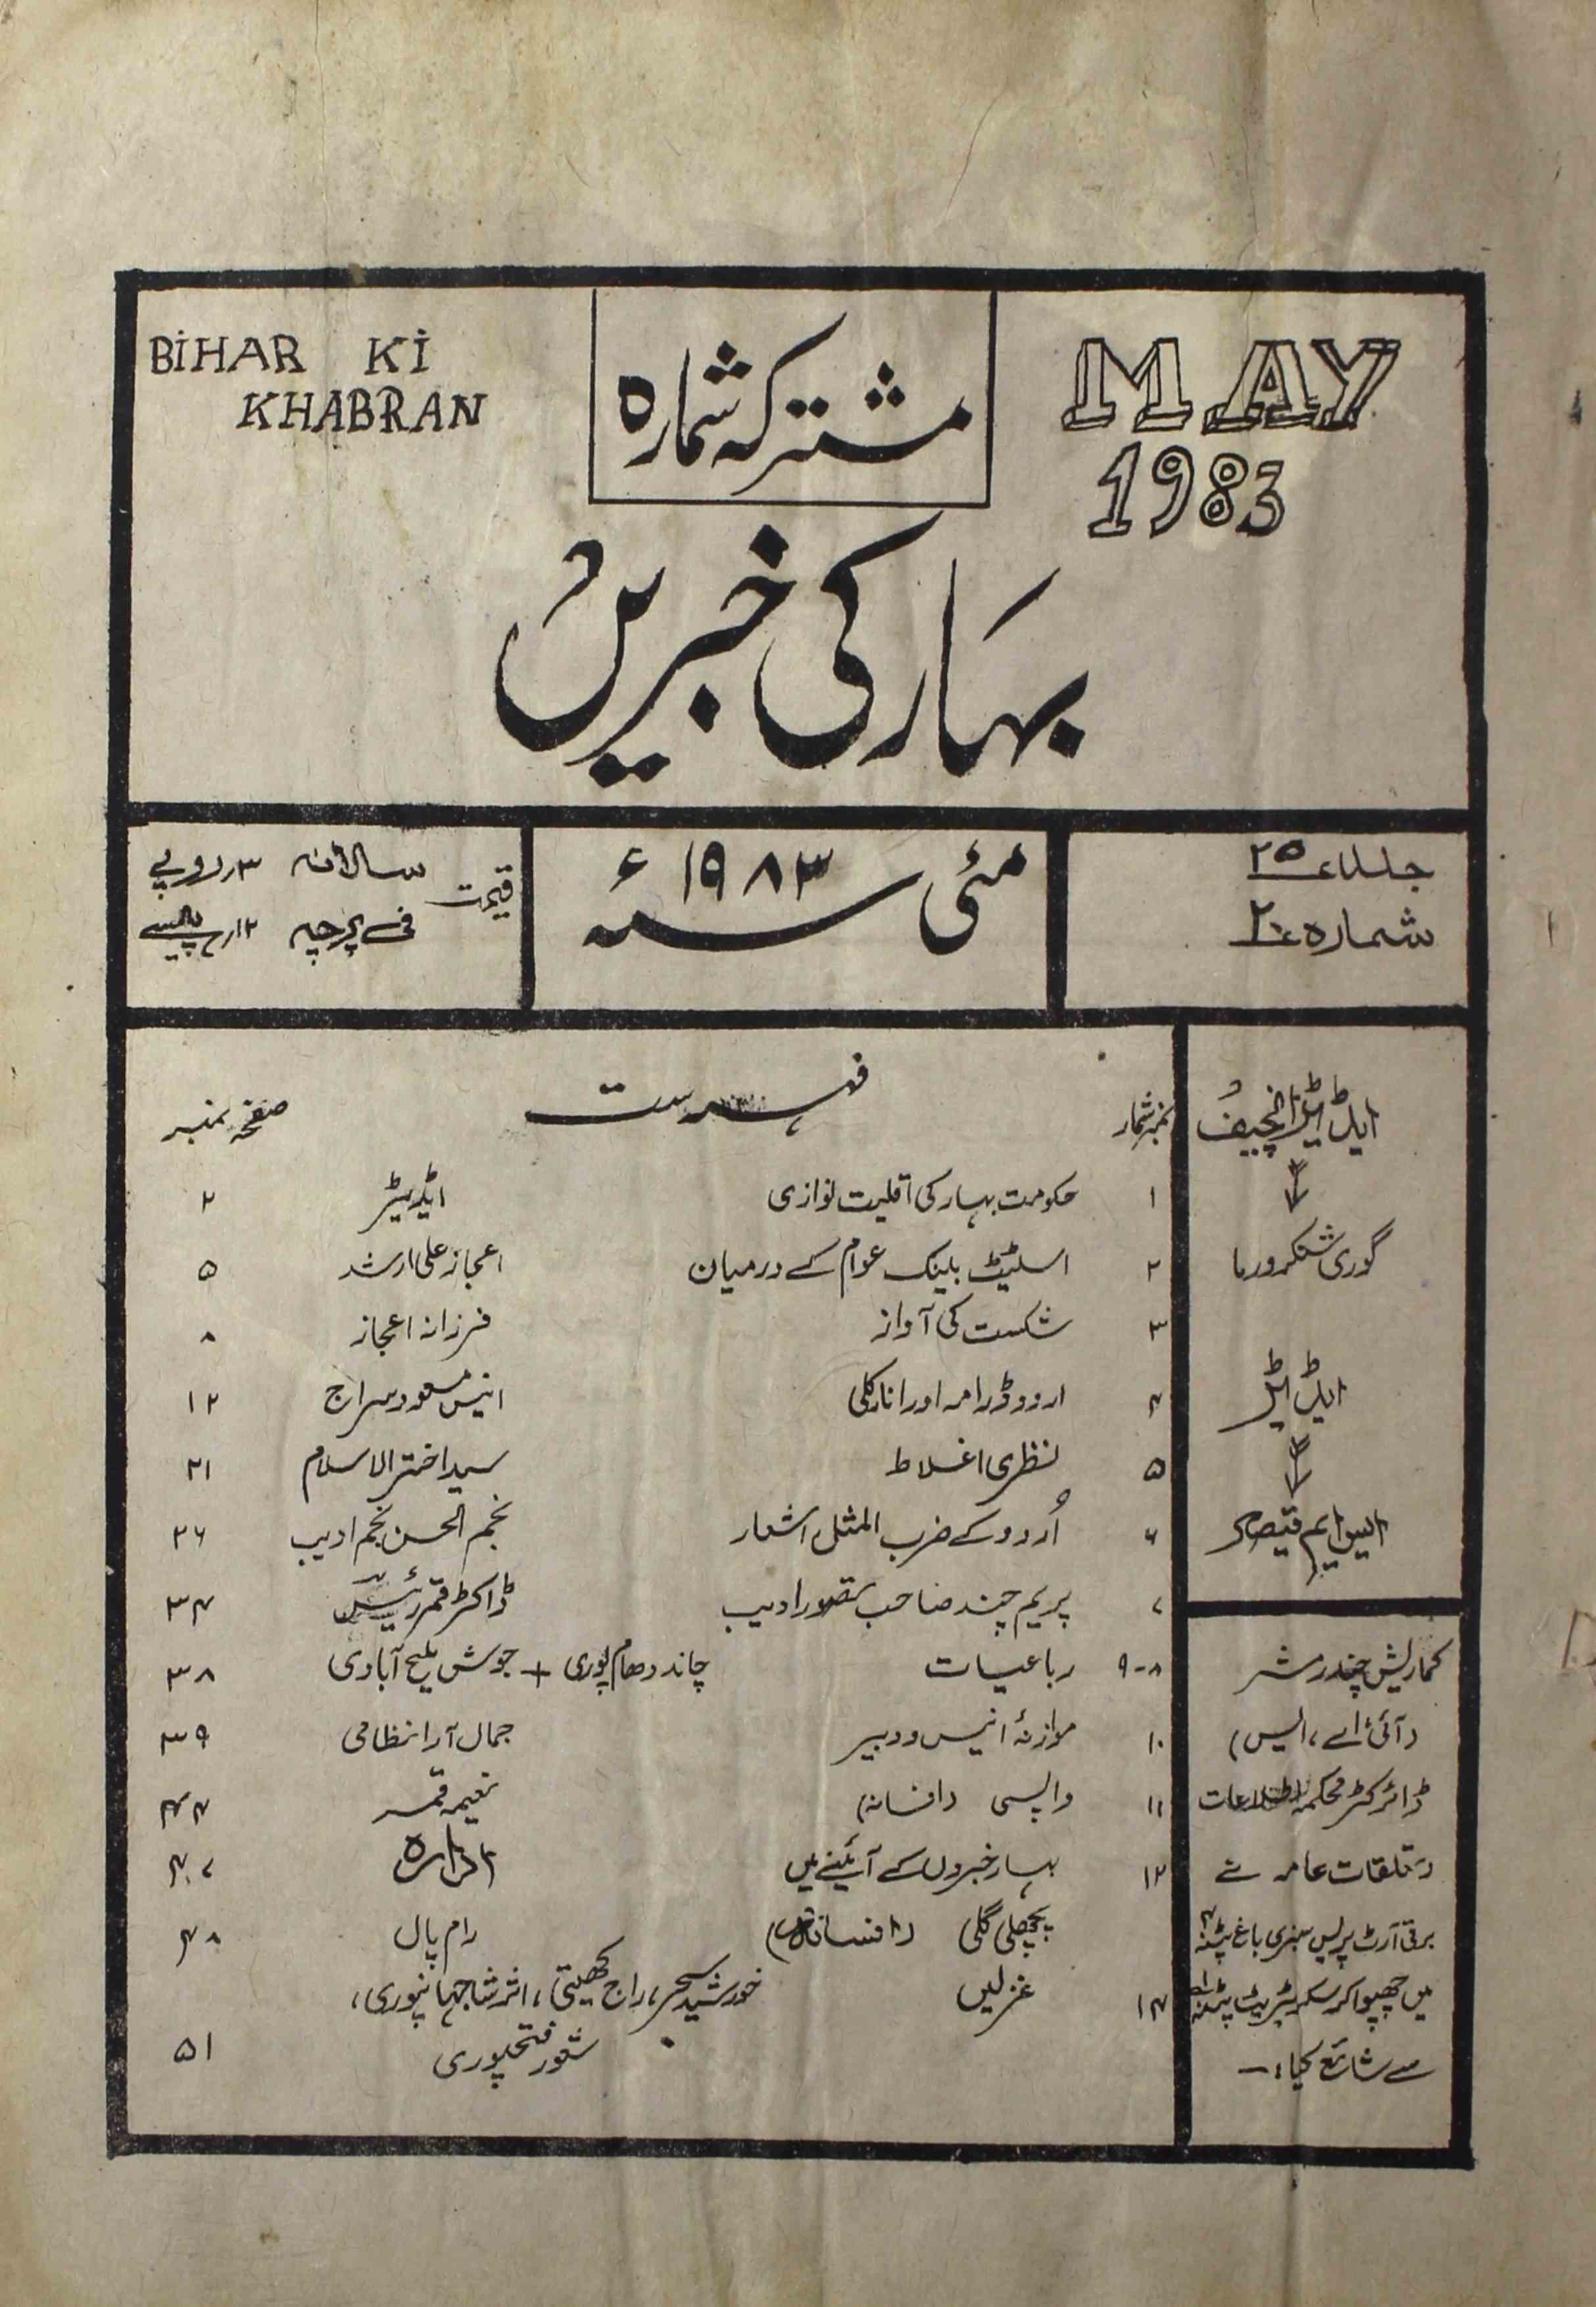 BIHAR KI
KHABRAN
مشترکہ شمارہ
MAY
1983
بہار کی خبریں
جلد ۲۵
شمارہ ۲۰
مئی سنہ ۱۹۸۳ء
قیمت
سالانہ ۳؍روپے
فی پرچہ ۱۲؍پیسے
ایڈیٹر انچیف
گوری شنکر ورما
ایڈیٹر
ایس ایم قیصر
کماریش چندر مشر
(آئی، اے، ایس)
ڈائرکٹر محکمہ اطلاعات
و تعلقات عامہ نے
برقی آرٹ پریس سبزی باغ پٹنہ ۴
میں چھپوا کر سکریٹریٹ پٹنہ
سے شائع کیا:—
نمبر شمار فہرست صفحہ نمبر
۱ حکومت بہار کی اقلیت نوازی ایڈیٹر ۲
۲ اسٹیٹ بینک عوام کے درمیان اعجاز علی ارشد ۵
۳ شکست کی آواز فرزانہ اعجاز ۸
۴ اردو ڈرامہ اور انارکلی انیس مسعود سراج ۱۲
۵ نظری اغلاط سید اختر الاسلام ۲۱
۶ اُردو کے ضرب المثل اشعار نجم الحسن نجم ادیب ۲۶
۷ پریم چند صاحب تصور ادیب ڈاکٹر قمر رئیس ۳۴
۸-۹ رباعیات چاند دھام پوری + جوش ملیح آبادی ۳۸
۱۰ موازنۂ انیس و دبیر جمال آرا نظامی ۳۹
۱۱ واپسی (افسانہ) نعیمہ قمر ۴۴
۱۲ بہار خبروں کے آئینے میں ادارہ ۴۷
پچھلی گلی (افسانہ) رام پال ۴۸
۱۴ غزلیں خورشید سحر، راج کھیتی، اثر شاہجہانپوری،
شعور فتحپوری ۵۱